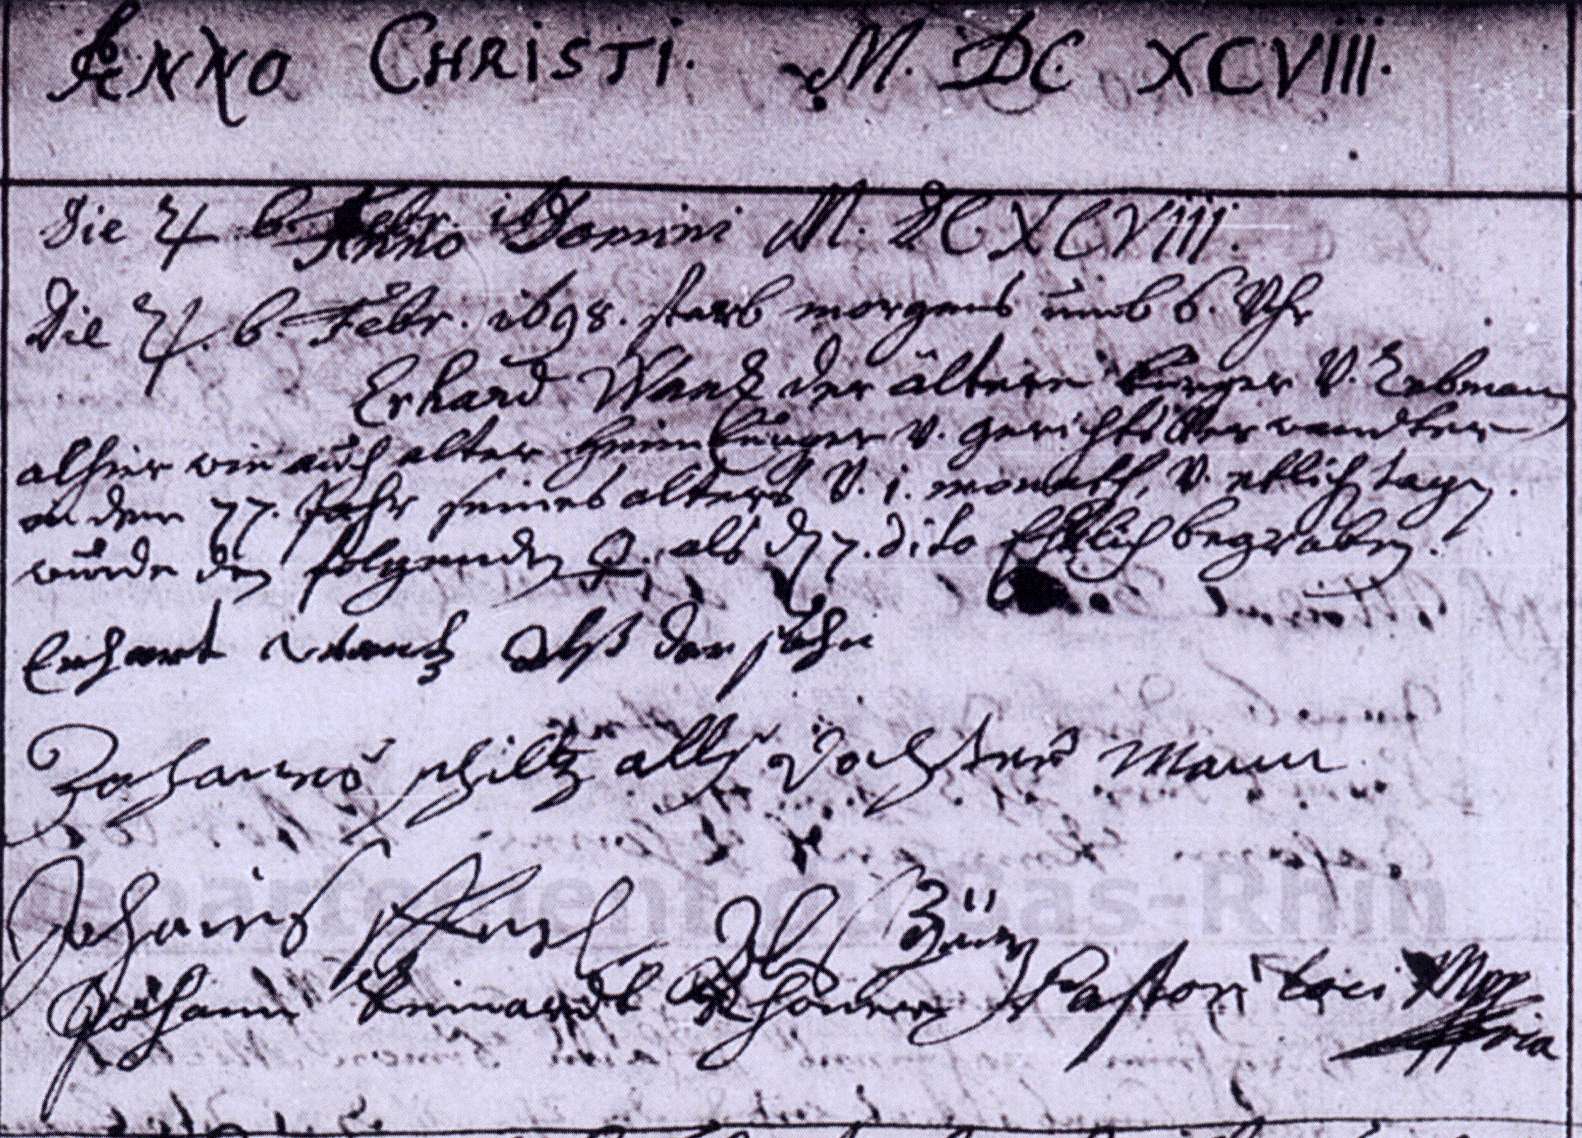 ANNO CHRISTI. M. DC XCVIII.
Die ♃ 6. Febr. Anno Domini M. DC XCVIII.
Die ♃. 6. Febr. 1698. starb morgens umb 6. Uhr
Erhard Wantz der ältere burger V. Lebman
alhier wie auch alter Heimburger V. gerichts Verwandter
in dem 77. Jahr seines alters V. 1. monath, V. etlich tag.
wurde den folgenden ♀. als d. 7. dito Ehrlich begraben.
Erhart Wantz Alß der sohn
Johannes schiltz allß dochter Mann
Johannes
Johann Reinardt Pastor loci
Departement du Bas-Rhin